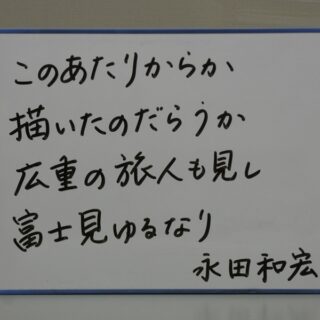 このあたりからか
描いたのだらうか
広重の旅人も見し
富士見ゆるなり
永田和宏